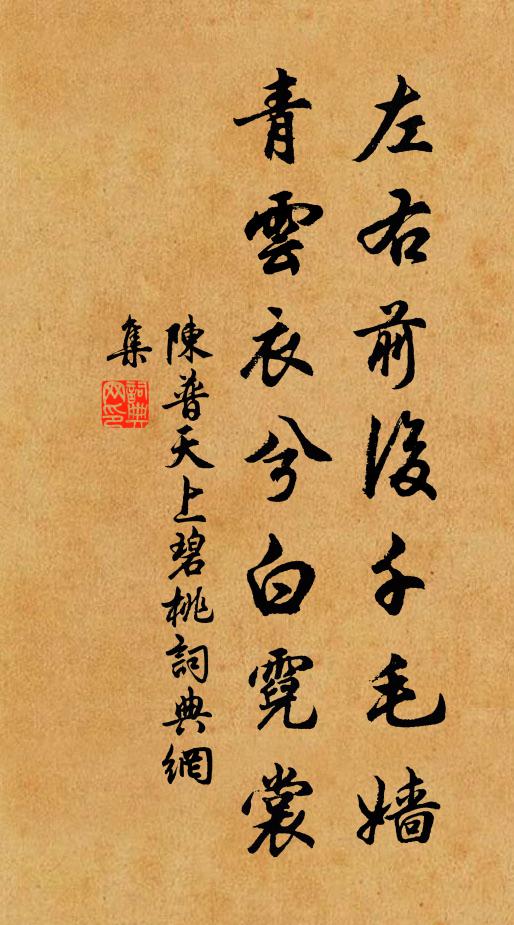 左右前後千毛嬙
青雲衣兮白霓裳
陳普天上碧桃詞典網
集
詞典網印